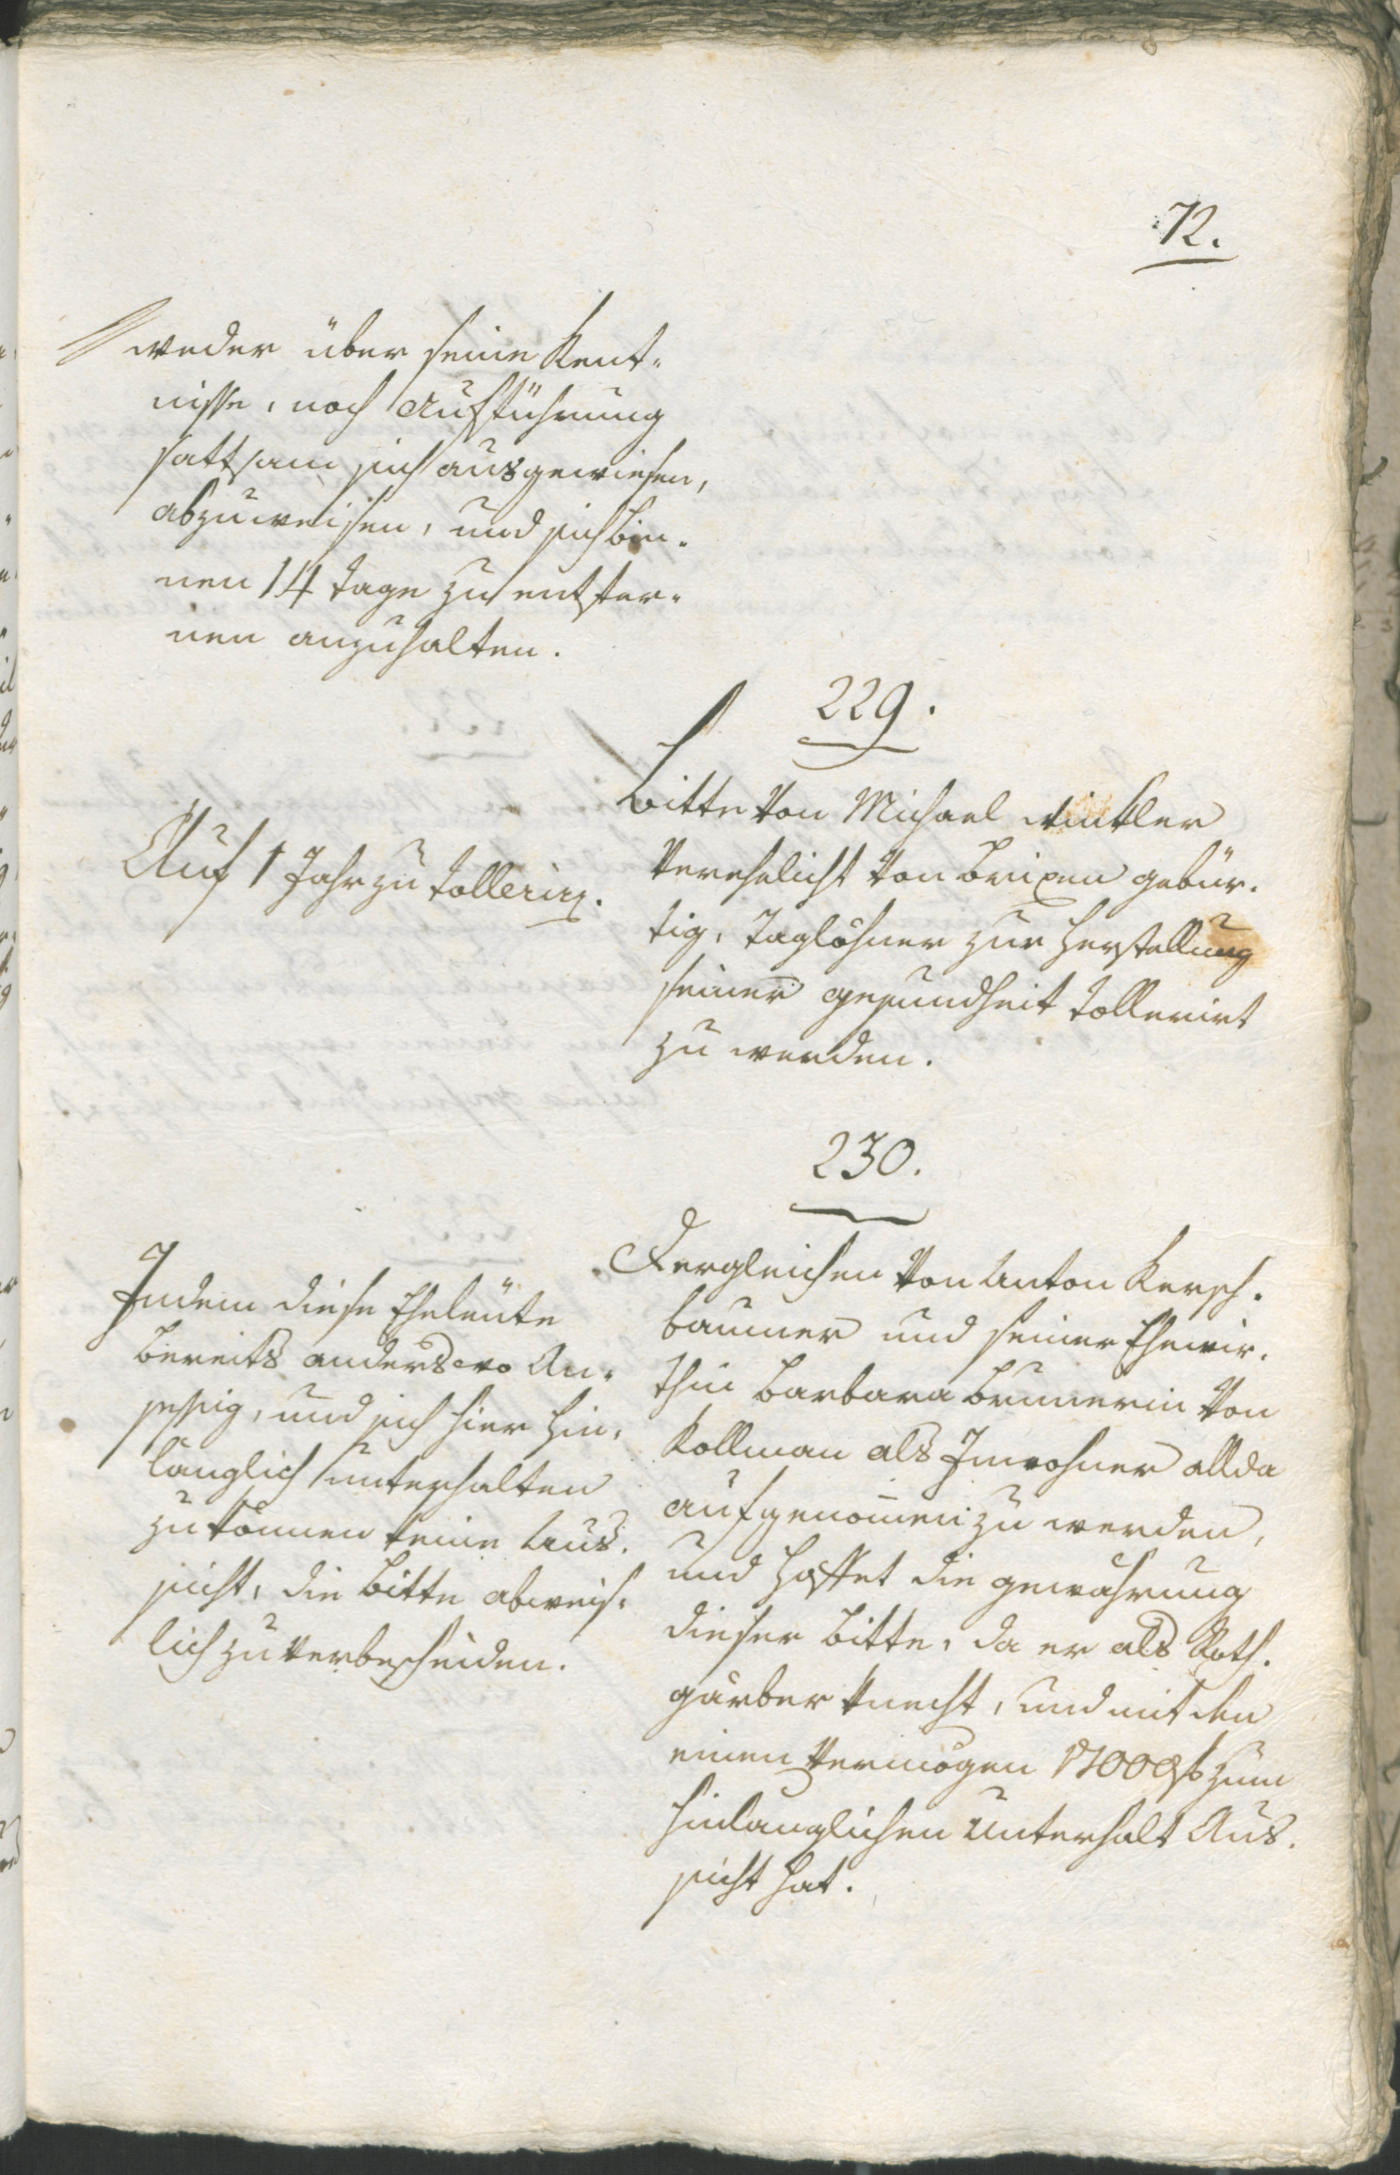 72.
weder über seine Kent¬
nisse, noch Aufführung
sattsam sich ausgewiesen,
abzuweisen, und sich bin¬
nen 14 tage zu entfer¬
nen anzuhalten.
229.
Bitte von Michael Winkler
verehelicht von Brixen gebür¬
tig, Taglöhner zur Herstellung
seiner gesundheit tollerirt
zu werden.
Auf 1 Jahr zu tollerirn.
230.
Dergleichen von Anton Kersch¬
baumer und seiner Ehewir¬
thin Barbara Brunerin von
Kollman als Innwohner allda
aufgenom̄en zu werden,
und hoffet die gewährung
dieser Bitte, da er als Roth¬
gärber knecht, und mit den
einen vermögen 1700 f zum
hinlänglichen Unterhalt Aus¬
sicht hat.
Indem diese Eheleüte
bereits anderswo An¬
sessig, und sich hier hin¬
länglich unterhalten
zu können keine Aus¬
sicht, die Bitte abweis¬
lich zu verbescheiden.